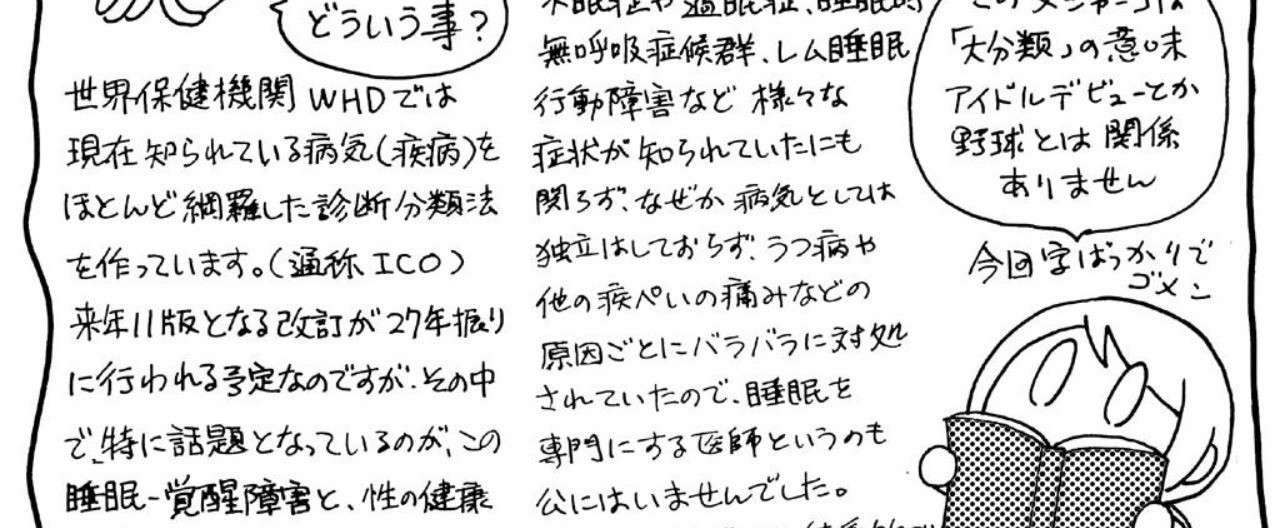 どういう事？
世界保健機関 WHDでは
現在知られている病気(疾病)を
ほとんど網羅した診断分類法
を作っています。(通称 ICO)
来年11版となる改訂が27年振り
に行われる予定なのですが、その中
で、特に話題となっているのが、この
睡眠-覚醒障害と、性の健康
不眠症や過眠症、睡眠時
無呼吸症候群、レム睡眠
行動障害など 様々な
症状が知られていたにも
関らず、なぜか病気としては
独立はしておらず、うつ病や
他の疾ぺいの痛みなどの
原因ごとにバラバラに対処
されていたので、睡眠を
専門にする医師というのも
公にはいませんでした。
このメジャーは
「大分類」の意味
アイドルデビューとか
野球とは関係
ありません
今回字ばっかりで
ゴメン